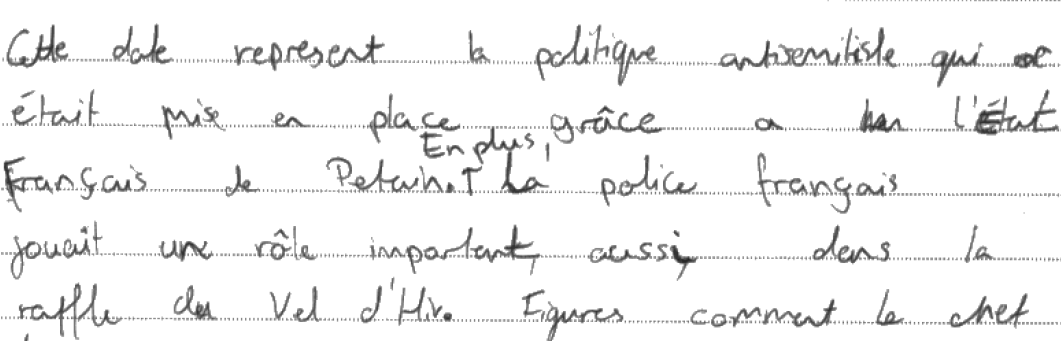 Cette date represent la politique antisemitiste qui
était mise en place grâce a l'État
Français de Petain. En plus, La police français
jouait une rôle important, aussi, dans la
raffle du Vel d'Hiv. Figures comment le chef